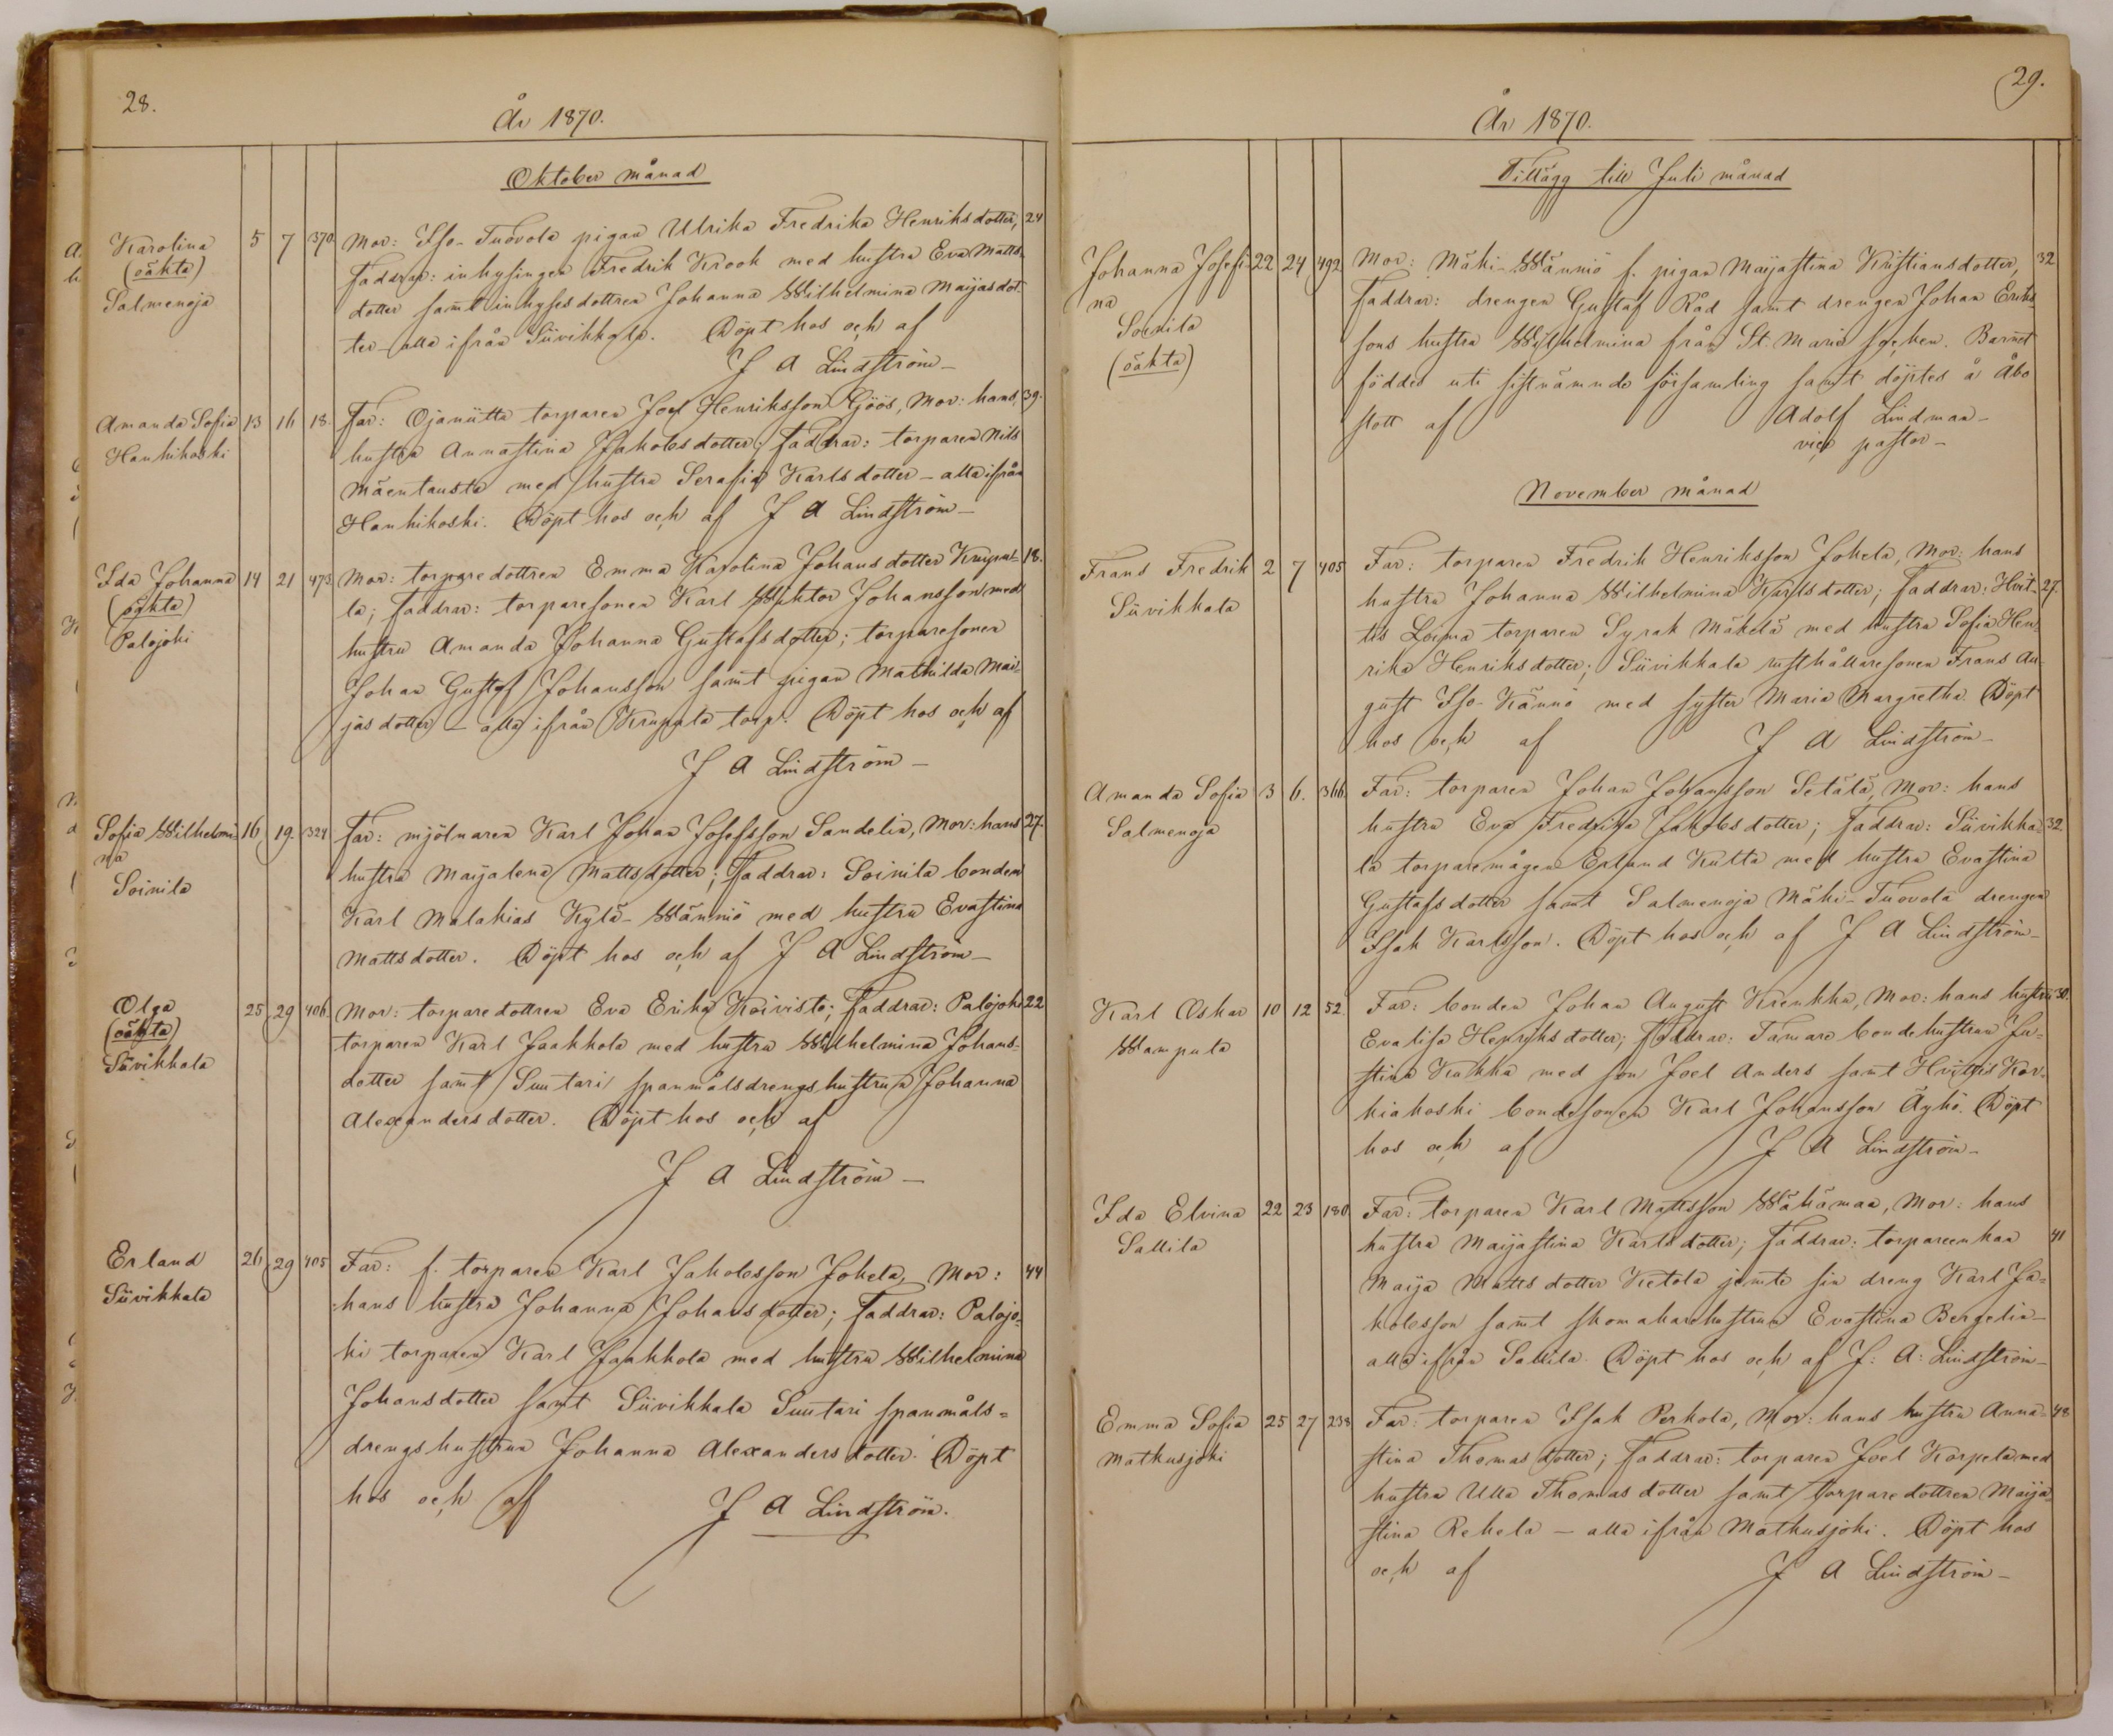 28.
År 1870.
Oktober månad
Karolina 5 7 370. Mor: Iso-Tuovola pigan Ulrika Fredrika Henriksdotter, 24
(oäkta) faddrar: inhysingen Fredrik Krook med hustru Eva Matts-
Salmenoja dotter samt inhysesdottren Johanna Wilhelmina Maijasdot-
ter - alla ifrån Siivikkala. Döpt hos och af
J A Lindström -
Amanda Sofia 13 16 18. Far: Ojaniitta torparen Joel Henriksson Göös, Mor: hans 39.
Hanhikoski hustru Annastina Jakobsdotter; faddrar: torparen Nils
Mäentausta med hustru Serafia Karlsdotter - alla ifrån
Hanhikoski. Döpt hos och af J A Lindström -
Ida Johanna 14 21 473. Mor: torparedottren Emma Karolina Johansdotter 18.
(oäkta) la; faddrar: torparesonen Karl Wiktor Johansson med
Palojoki hustru Amanda Johanna Gustafsdotter; torparesonen
Johan Gustaf Johansson samt pigan Mathilda Mai-
jasdotter - alla ifrån torp. Döpt hos och af
J A Lindström -
Sofia Wilhelmi- 16 19. 324 Far: mjölnaren Karl Johan Josefsson Sandelin, Mor: hans 27.
na hustru Maijalena Mattsdotter; faddrar: Soinila bonden
Soinila Karl Malakias Kylä-Wänniö med hustru Evastina
Mattsdotter. Döpt hos och af J A Lindström -
Olga 25 29 406. Mor: torparedottren Eva Erika Koivisto; faddrar: Palojoki 22
(oäkta) torparen Karl Jaakkola med hustru Wilhelmina Johans-
Siivikkala dotter samt Suutari spanmålsdrengshustrun Johanna
Alexandersdotter. Döpt hos och af
J A Lindström -
Erland 26 29 405 Far: f. torparen Karl Jakobsson Jokela, Mor: 44
Siivikkala hans hustru Johanna Johansdotter; faddrar: Palojo-
ki torparen Karl Jaakkola med hustru Wilhelmina
Johansdotter samt Siivikkala Suutari spanmåls=
drengshustrun Johanna Alexandersdotter. Döpt
hos och af J A Lindström.
29.
År 1870.
Tillägg till Juli månad
Johanna Josefi- 22 24 492 Mor: Mäki-Wänniö f. pigan Maijastina Kristiansdotter, 32
na faddrar: drengen Gustaf Råd samt drengen Johan Eriks-
Soinila sons hustru Wilhelmina från St. Marie socken. Barnet
(oäkta) föddes uti sistnämnde församling samt döptes å Åbo
slott af Adolf Lindman -
vice pastor -
November månad
Frans Fredrik 2 7 405 Far: torparen Fredrik Henriksson Jokela, Mor: hans
Siivikkala hustru Johanna Wilhelmina Karlsdotter; faddrar: Hvit- 27.
tis Loima torparen Syrak Mäkelä med hustru Sofia Hen-
rika Henriksdotter; Siivikkala rusthållaresonen Frans Au-
gust Iso-Kännö med syster Maria Margretha. Döpt
hos och af J A Lindström -
Amanda Sofia 3 6. 366. Far: torparen Johan Johansson Setälä, Mor: hans
Salmenoja hustru Eva Fredrika Jakobsdotter; faddrar: Siivikka- 32.
la torparemågen Erland Kulta med hustru Evastina
Gustafsdotter samt Salmenoja Mäki-Tuovola drengen
Isak Karlsson. Döpt hos och af J A Lindström -
Karl Oskar 10 12 52. Far: bonden Johan August Krenkku, Mor: hans hustru 30.
Wampula Evalisa Henriksdotter; faddrar: Tamare bondehustrun Ju-
stina Kukka med son Joel Anders samt Hvittis Kor-
kiakoski bondesonen Karl Johansson Äyhö. Döpt
hos och af J A Lindström -
Ida Elvina 22 23 180 Far: torparen Karl Mattsson Wähämaa, Mor: hans
Sallila hustru Maijastina Karlsdotter; faddrar: torpareenkan 41
Maija Mattsdotter Ketola jemte sin dreng Karl Ja=
kobsson samt skomakarehustrun Evastina Bergelin -
alla ifrån Sallila. Döpt hos och af J. A. Lindström -
Emma Sofia 25 27 238 Far: torparen Isak Perkola, Mor: hans hustru Anna- 48
Matkusjoki stina Thomasdotter; faddrar: torparen Joel Korpela med
hustru Ulla Thomasdotter samt torparedottren Maija-
stina Rekola - alla ifrån Matkusjoki. Döpt hos
och af J A Lindström -